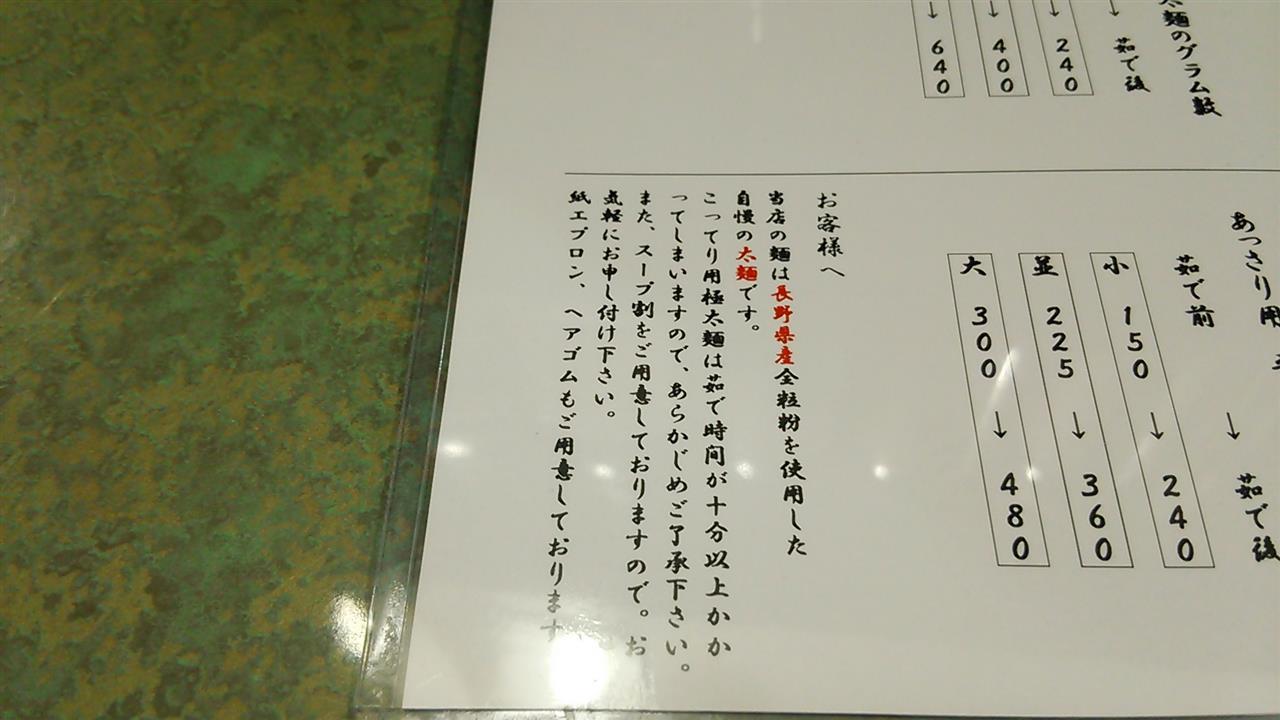 太麺のグラム数
↓ 茹で後
↓ 240
↓ 400
↓ 640
あっさり用
茹で前 ↓ 茹で後
小 150 ↓ 240
並 225 ↓ 360
大 300 ↓ 480
お客様へ
当店の麺は長野県産全粒粉を使用した
自慢の太麺です。
こってり用極太麺は茹で時間が十分以上かか
ってしまいますので、あらかじめご了承下さい。
また、スープ割をご用意しておりますので。お
気軽にお申し付け下さい。
紙エプロン、ヘアゴムもご用意しております